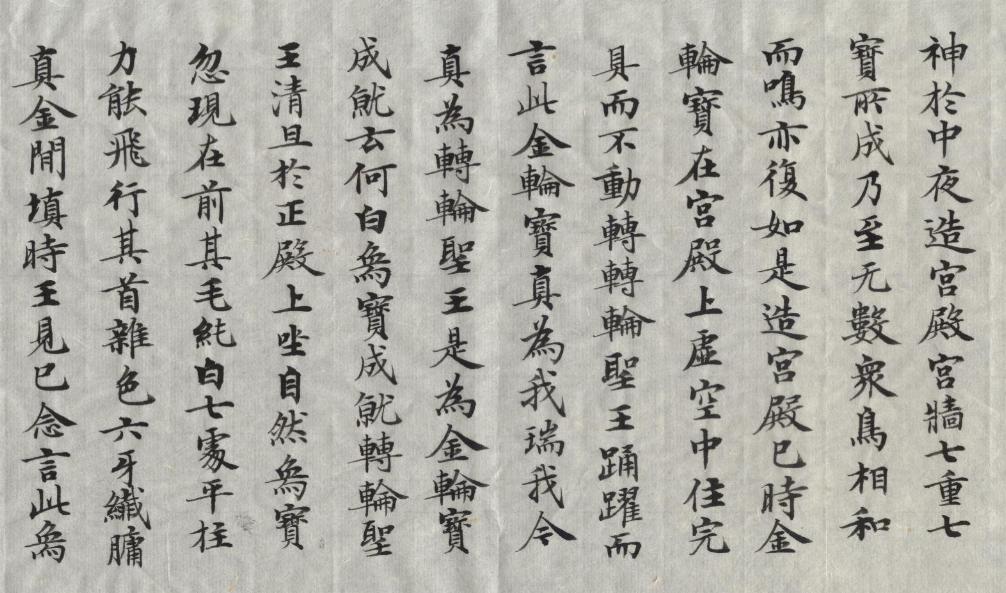 神於中夜造宮殿宮牆七重七
寶所成乃至无數衆鳥相和
而鳴亦復如是造宮殿已時金
輪寶在宮殿上虛空中住完
具而不動轉轉輪聖王踊躍而
言此金輪寶真為我瑞我今
真為轉輪聖王是為金輪寶
成就云何白為寶成就轉輪聖
王清旦於正殿上坐自然為寶
忽現在前其毛純白七處平柱
力能飛行其首雜色六牙纖𦟛
真金閒填時王見已念言此為